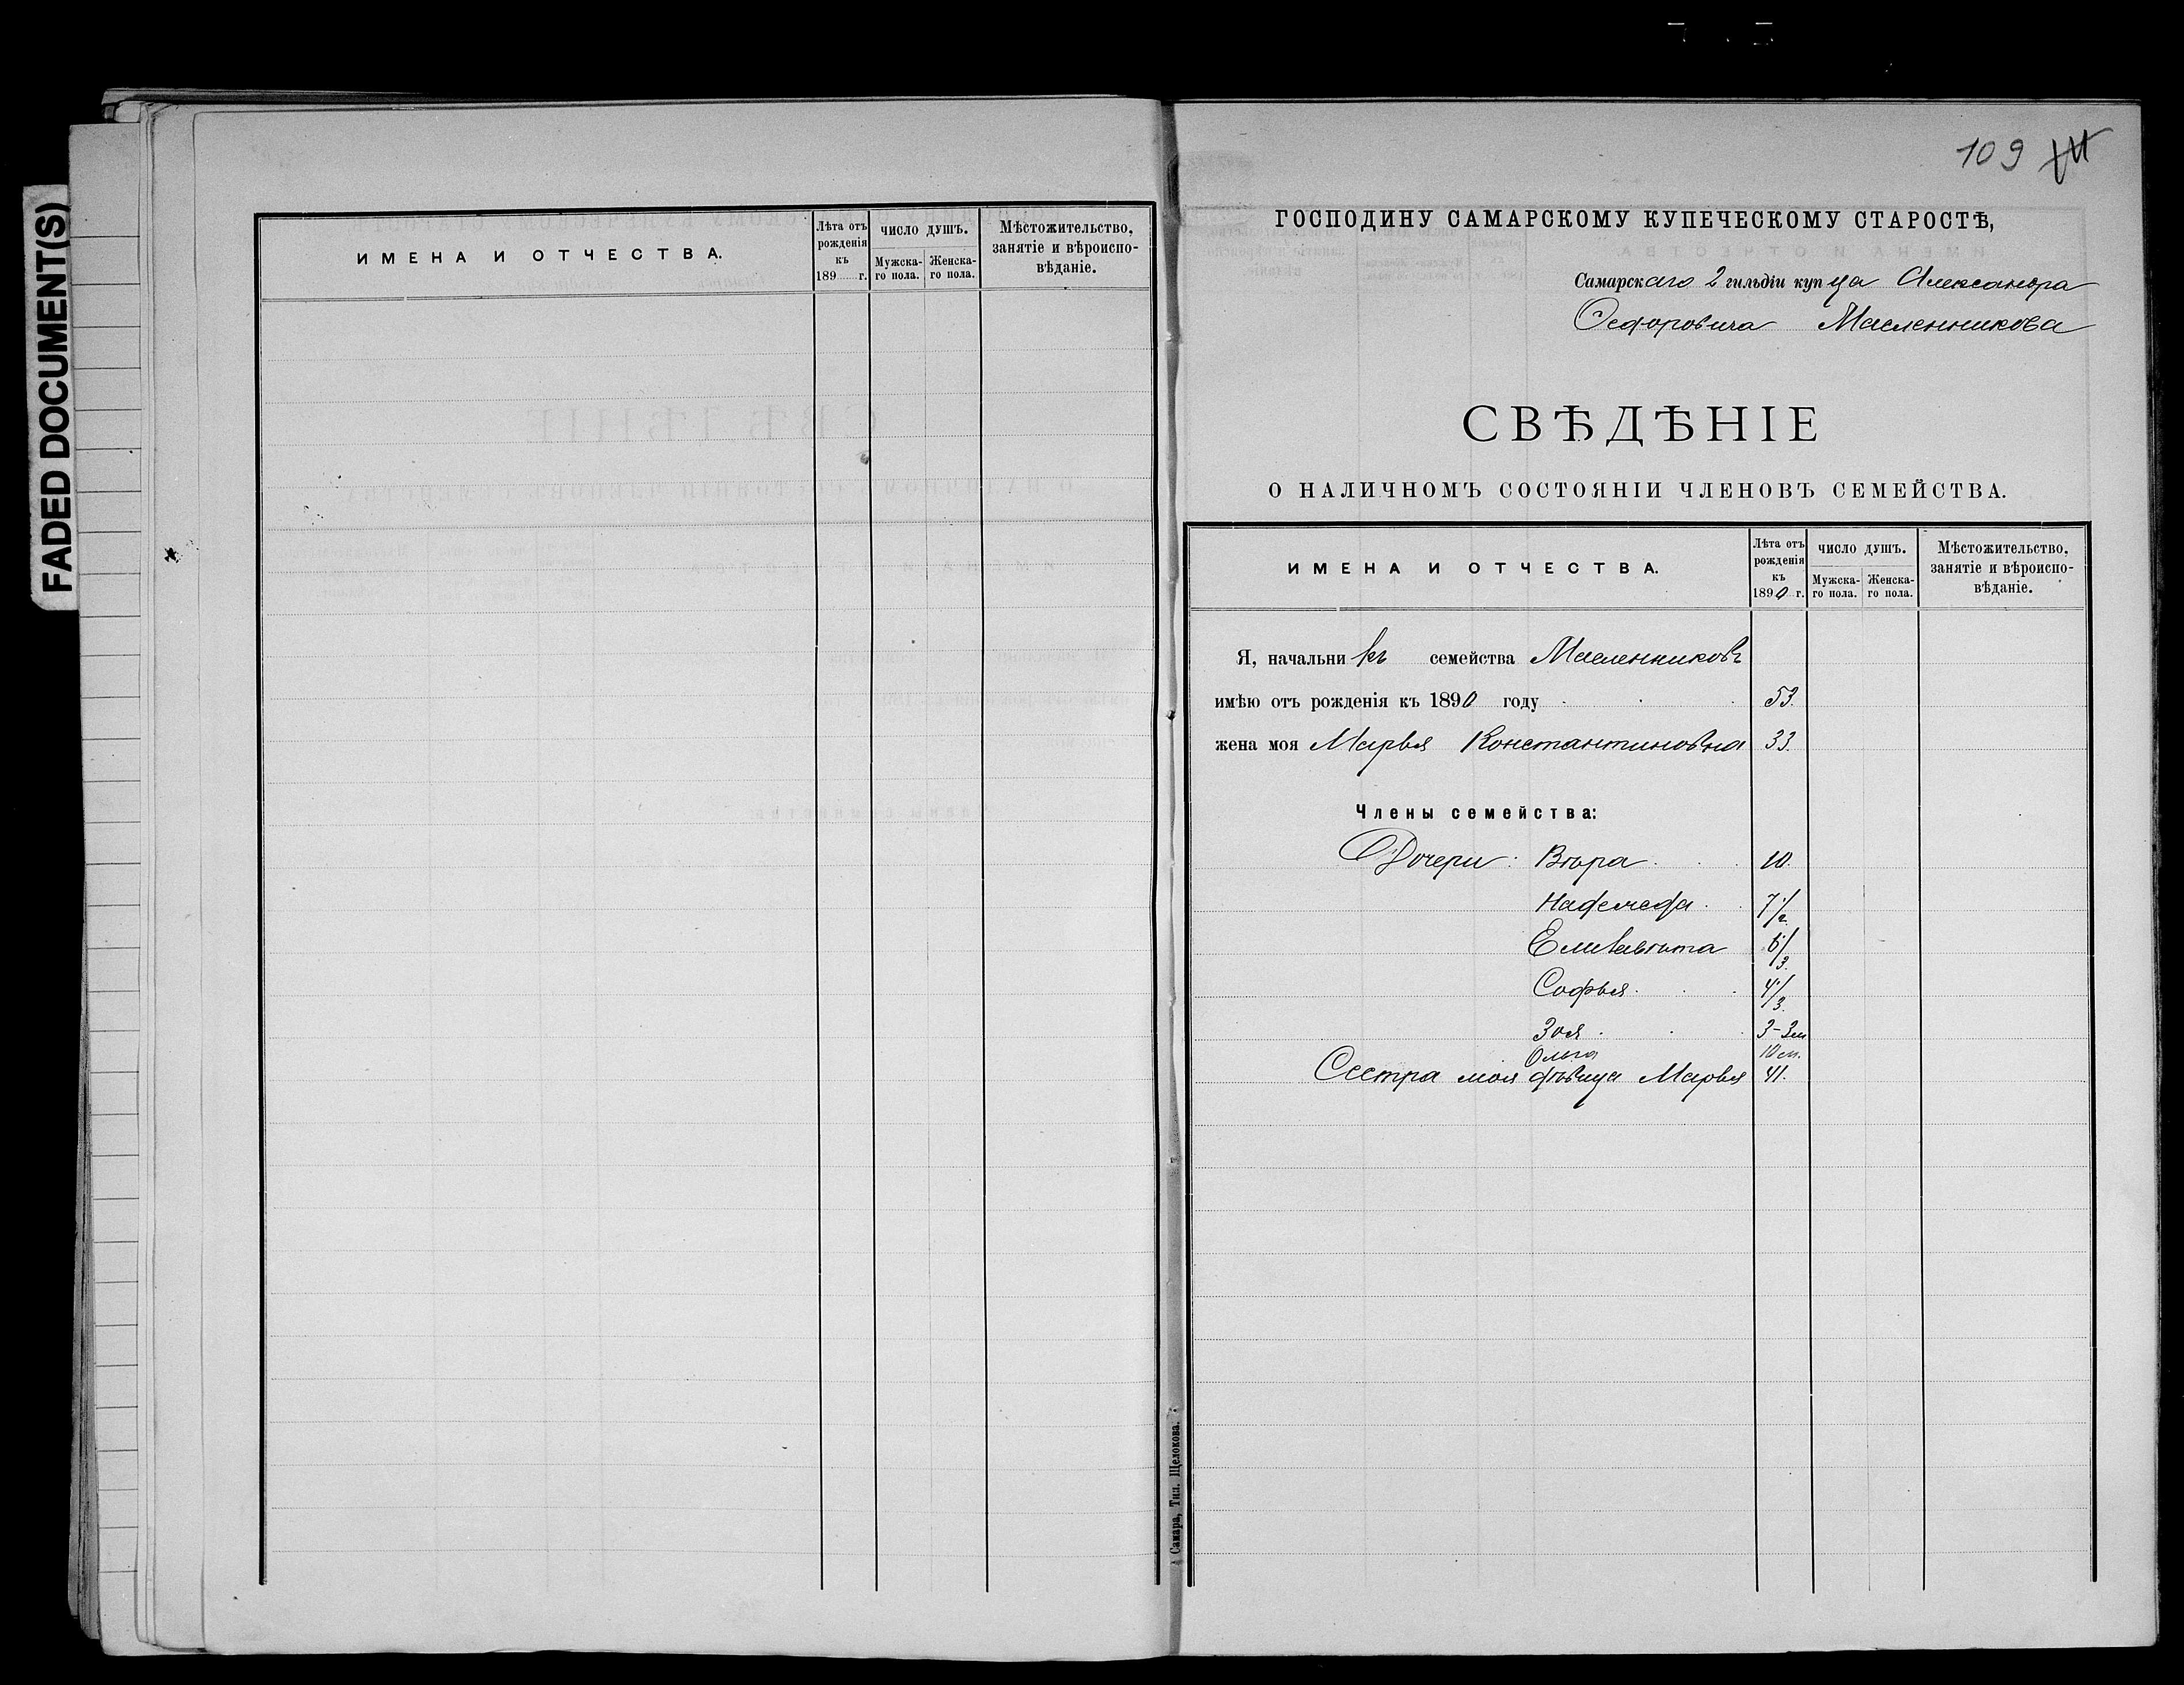 FADED DOCUMENT(S)
ИМЕНА И ОТЧЕСТВА.
Лѣта отъ рожденія къ 189 г.
ЧИСЛО ДУШЪ.
Мужска-го пола.
Женска-го пола.
Мѣстожительство, занятіе и вѣроиспо-вѣданіе.
109
ГОСПОДИНУ САМАРСКОМУ КУПЕЧЕСКОМУ СТАРОСТѢ,
Самарскаго 2 гильдіи купца Александра
Федоровича Масленникова
СВѢДѢНІЕ
О НАЛИЧНОМЪ СОСТОЯНІИ ЧЛЕНОВЪ СЕМЕЙСТВА.
ИМЕНА И ОТЧЕСТВА.
Лѣта отъ рожденія къ 1890 г.
ЧИСЛО ДУШЪ.
Мужска-го пола.
Женска-го пола.
Мѣстожительство, занятіе и вѣроиспо-вѣданіе.
Я, начальникъ семейства Масленниковъ
имѣю отъ рожденія къ 1890 году 53.
жена моя Марья Константиновна 33.
Члены семейства:
Дочери: Вѣра 10.
Надежда 7 1/2.
Елизавѣта 6 1/3.
Софья 4 1/3.
Зоя 3-3 м
Ольга 10 м.
Сестра моя дѣвица Марья 41.
Самара, Тип. Щелокова.